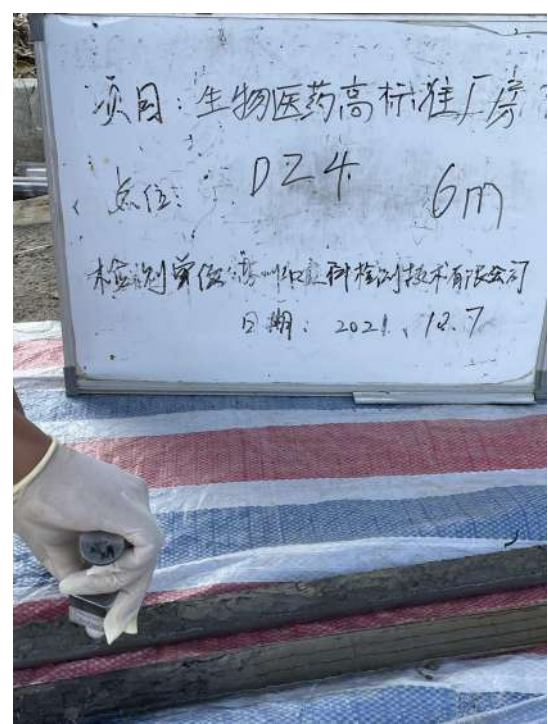 项目：生物医药高标准厂房
点位： DZ4 6m
检测单位：苏州 科检测技术有限公司
日期：2021.12.7